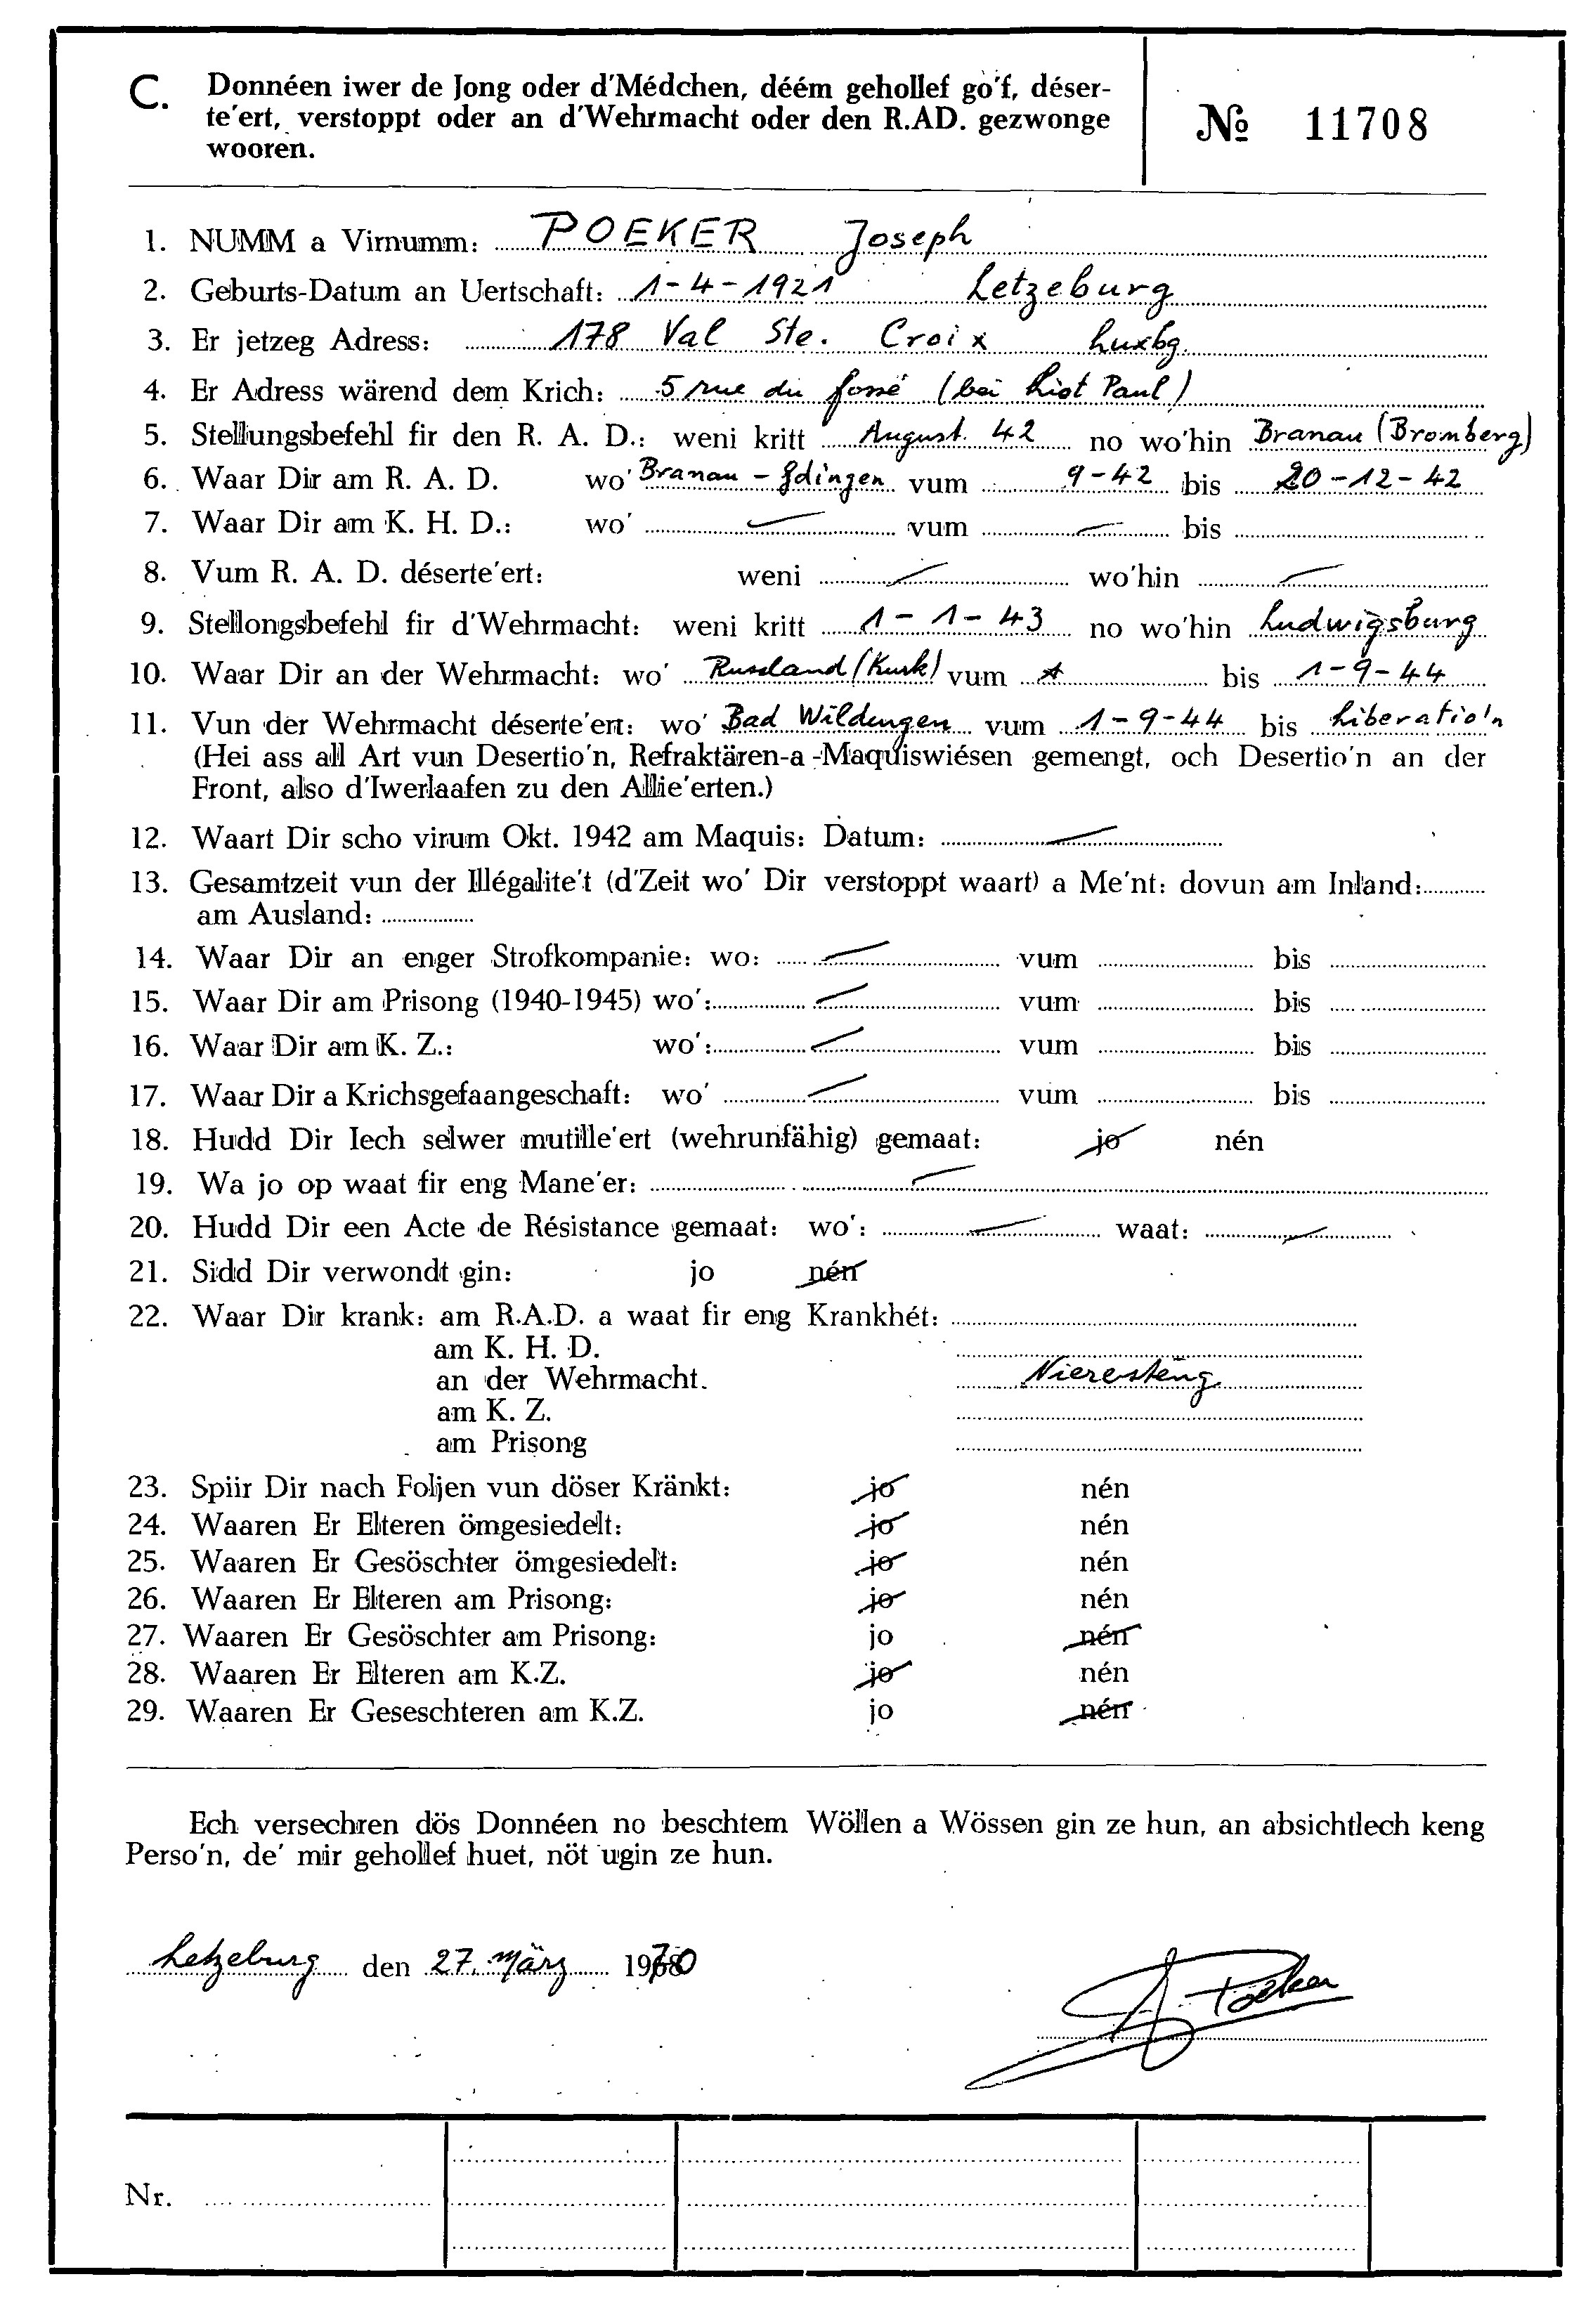 C. Donnéen iwer de Jong oder d'Médchen, déém gehollef go'f, déser-
te'ert, verstoppt oder an d'Wehrmacht oder den R.AD. gezwonge
wooren.
№ 11708
1. NUMM a Virnumm: POEKER Joseph
2. Geburts-Datum an Uertschaft: 1-4-1921 Letzeburg
3. Er jetzeg Adress: 178 Val Ste. Croix Luxbg.
4. Er Adress wärend dem Krich: 5 rue du fossé (bei Liot Paul)
5. Stellungsbefehl fir den R. A. D.: weni kritt August 42 no wo'hin Branau (Bromberg)
6. Waar Dir am R. A. D. wo' Branau - Gdingen vum 9-42 bis 20-12-42
7. Waar Dir am K. H. D.: wo' vum bis
8. Vum R. A. D. déserte'ert: weni wo'hin
9. Stellongsbefehl fir d'Wehrmacht: weni kritt 1-1-43 no wo'hin Ludwigsburg
10. Waar Dir an der Wehrmacht: wo' Russland (Kursk) vum bis 1-9-44
11. Vun der Wehrmacht déserte'ert: wo' Bad Wildungen vum 1-9-44 bis Liberatio'n
(Hei ass all Art vun Desertio'n, Refraktären-a -Maquiswiésen gemengt, och Desertio'n an der
Front, also d'Iwerlaafen zu den Allie'erten.)
12. Waart Dir scho virum Okt. 1942 am Maquis: Datum:
13. Gesamtzeit vun der Illégalite't (d'Zeit wo' Dir verstoppt waart) a Me'nt: dovun am Inland:
am Ausland:
14. Waar Dir an enger Strofkompanie: wo: vum bis
15. Waar Dir am Prisong (1940-1945) wo': vum bis
16. Waar Dir am K. Z.: wo': vum bis
17. Waar Dir a Krichsgefaangeschaft: wo' vum bis
18. Hudd Dir Iech selwer mutille'ert (wehrunfähig) gemaat: jo nén
19. Wa jo op waat fir eng Mane'er:
20. Hudd Dir een Acte de Résistance gemaat: wo': waat:
21. Sidd Dir verwondt gin: jo nén
22. Waar Dir krank: am R.A.D. a waat fir eng Krankhét:
am K. H. D.
an der Wehrmacht. Nieresteng
am K. Z.
am Prisong
23. Spiir Dir nach Foljen vun döser Kränkt: jo nén
24. Waaren Er Elteren ömgesiedelt: jo nén
25. Waaren Er Gesöschter ömgesiedelt: jo nén
26. Waaren Er Elteren am Prisong: jo nén
27. Waaren Er Gesöschter am Prisong: jo nén
28. Waaren Er Elteren am K.Z. jo nén
29. Waaren Er Geseschteren am K.Z. jo nén
Ech versechren dös Donnéen no beschtem Wöllen a Wössen gin ze hun, an absichtlech keng
Perso'n, de' mir gehollef huet, nöt ugin ze hun.
Letzeburg den 27. März 1970
Poeker
Nr.